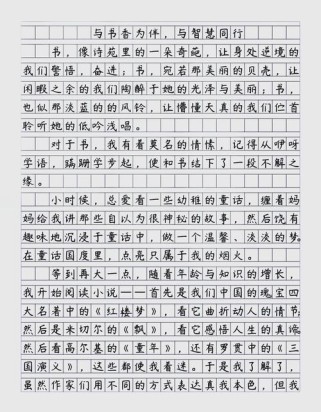 与书香为伴，与智慧同行
书，像诗苑里的一朵奇葩，让身处逆境的
我们警悟，奋进；书，宛若那美丽的贝壳，让
闲暇之余的我们陶醉于她的光泽与美丽；书，
也似那淡蓝的的风铃，让懵懂天真的我们伫首
聆听她的低吟浅唱。
对于书，我有着莫名的情愫，记得从咿呀
学语，蹒跚学步起，便和书结下了一段不解之
缘。
小时候，总爱看一些幼稚的童话，缠着妈
妈给我讲那些自以为很神秘的故事，然后饶有
趣味地沉浸于童话中，做一个温馨、淡淡的梦。
在童话国度里，点亮只属于我的烟火。
等到再大一点，随着年龄与知识的增长，
我开始阅读小说——首先是我们中国的瑰宝四
大名著中的《红楼梦》，看它曲折动人的情节
然后是米切尔的《飘》，看它感悟人生的真谛
然后看高尔基的《童年》，还有罗贯中的《三
国演义》，这些都使我着迷。于是我了解了，
虽然作家们用不同的方式表达真我本色，但我